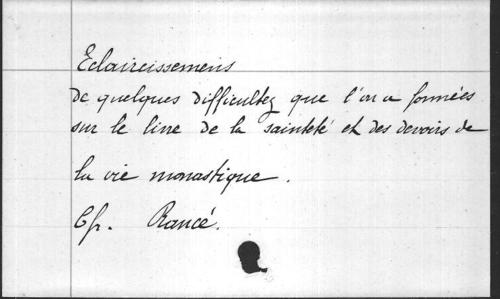 Eclaircissemens
de quelques difficultez que l'on a formées
sur le livre de la sainteté et des devoirs de
la vie monastique.
Cfr. Rancé.